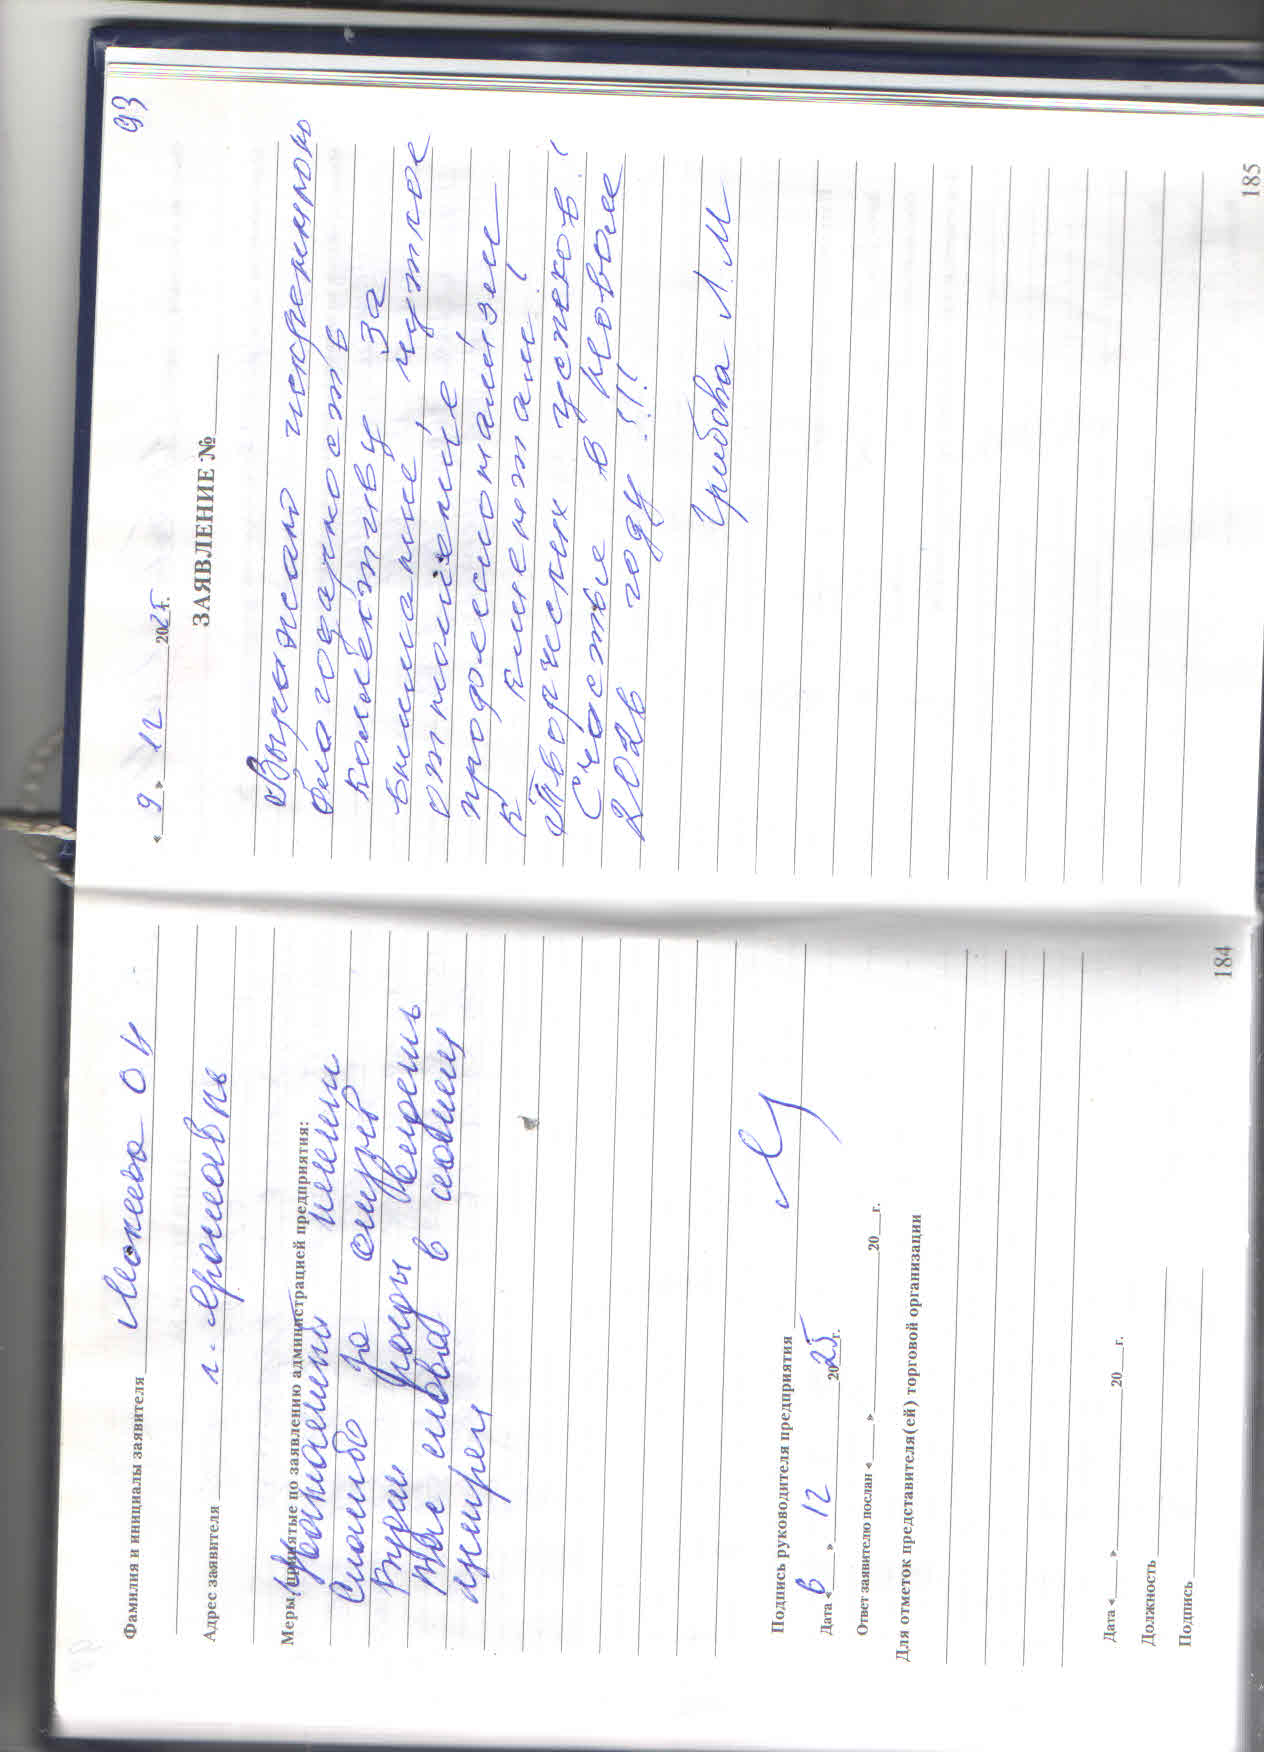 Фамилия и инициалы заявителя Мокеева О Н
Адрес заявителя г. Ярославль
Меры, принятые по заявлению администрацией предприятия:
Уважаемый
Спасибо за отзыв
Будем рады видеть
Вас снова в нашем
центре
Подпись руководителя предприятия
Дата « 8 » 12 2025 г.
Ответ заявителю послан « » 20 г.
Для отметок представителя(ей) торговой организации
Дата « » 20 г.
Должность
Подпись
184
93
« 9 » 12 2025 г.
ЗАЯВЛЕНИЕ №
Выражаю искреннюю
благодарность
коллективу за
внимание, чуткое
отношение
профессионализм
к клиентам!
Творческих успехов!
Счастья в новом
2026 году!!!
Грибова Л. М
185